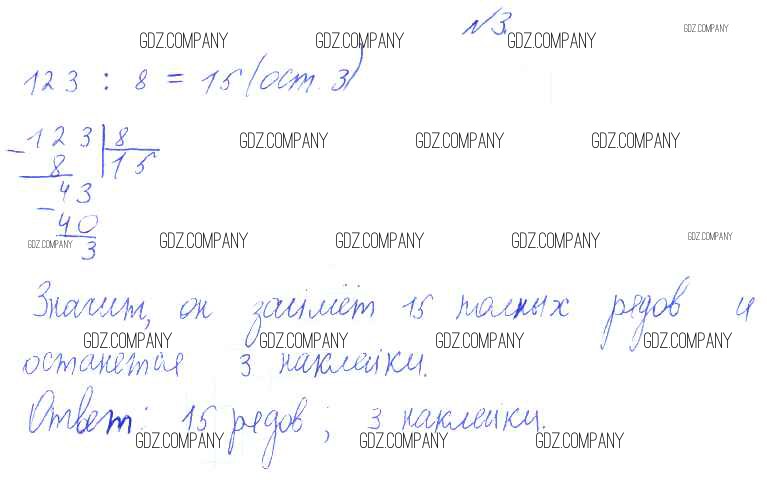 №3
GDZ.COMPANY GDZ.COMPANY GDZ.COMPANY GDZ.COMPANY
123 : 8 = 15 (ост. 3)
123 8 GDZ.COMPANY GDZ.COMPANY GDZ.COMPANY
8 15
43
40
GDZ.COMPANY 3 GDZ.COMPANY GDZ.COMPANY GDZ.COMPANY GDZ.COMPANY
Значит, он займёт 15 полных рядов и
GDZ.COMPANY GDZ.COMPANY GDZ.COMPANY GDZ.COMPANY
останется 3 наклейки.
Ответ: 15 рядов; 3 наклейки.
GDZ.COMPANY GDZ.COMPANY GDZ.COMPANY